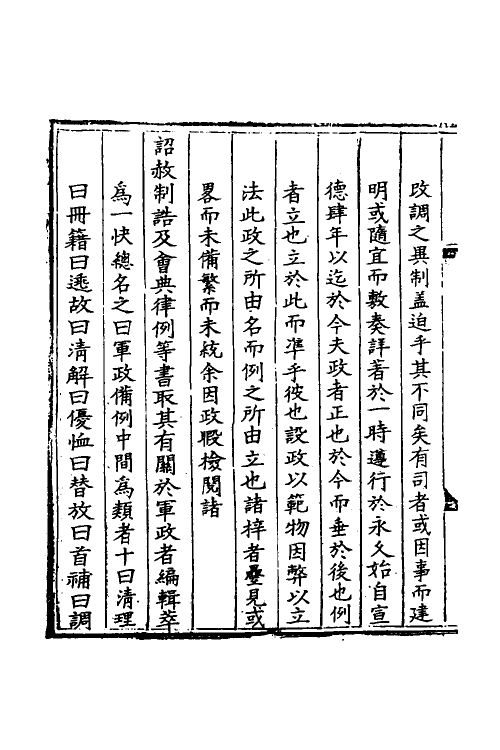 改調之異制盖迫乎其不同矣有司者或因事而建
明或隨宜而敷奏詳著於一時遵行於永久始自宣
德肆年以迄於今夫政者正也於今而垂於後也例
者立也立於此而凖乎彼也設政以範物因弊以立
法此政之所由名而例之所由立也諸梓者疊見或
畧而未備繁而未統余因政暇檢閱諸
詔赦制誥及會典律例等書取其有關於軍政者編輯萃
為一快總名之曰軍政備例中間為類者十曰清理
曰冊籍曰逃故曰清解曰優恤曰替放曰首補曰調